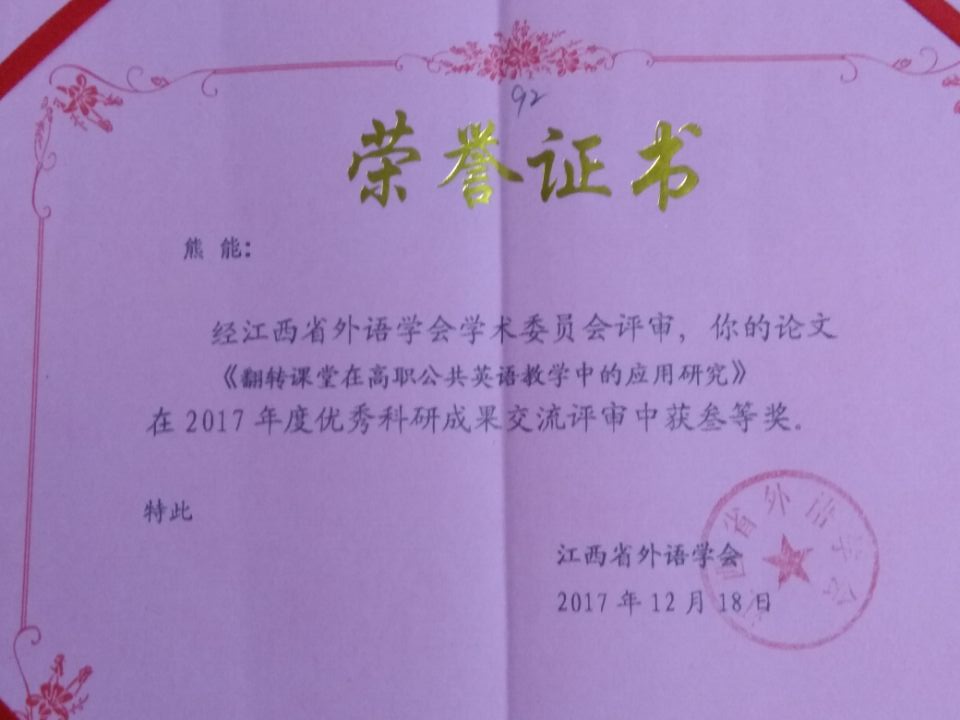 92
荣誉证书
熊 能：
经江西省外语学会学术委员会评审，你的论文
《翻转课堂在高职公共英语教学中的应用研究》
在 2017 年度优秀科研成果交流评审中获叁等奖。
特此
江西省外语学会
2017 年 12 月 18 日
江西省外语学会